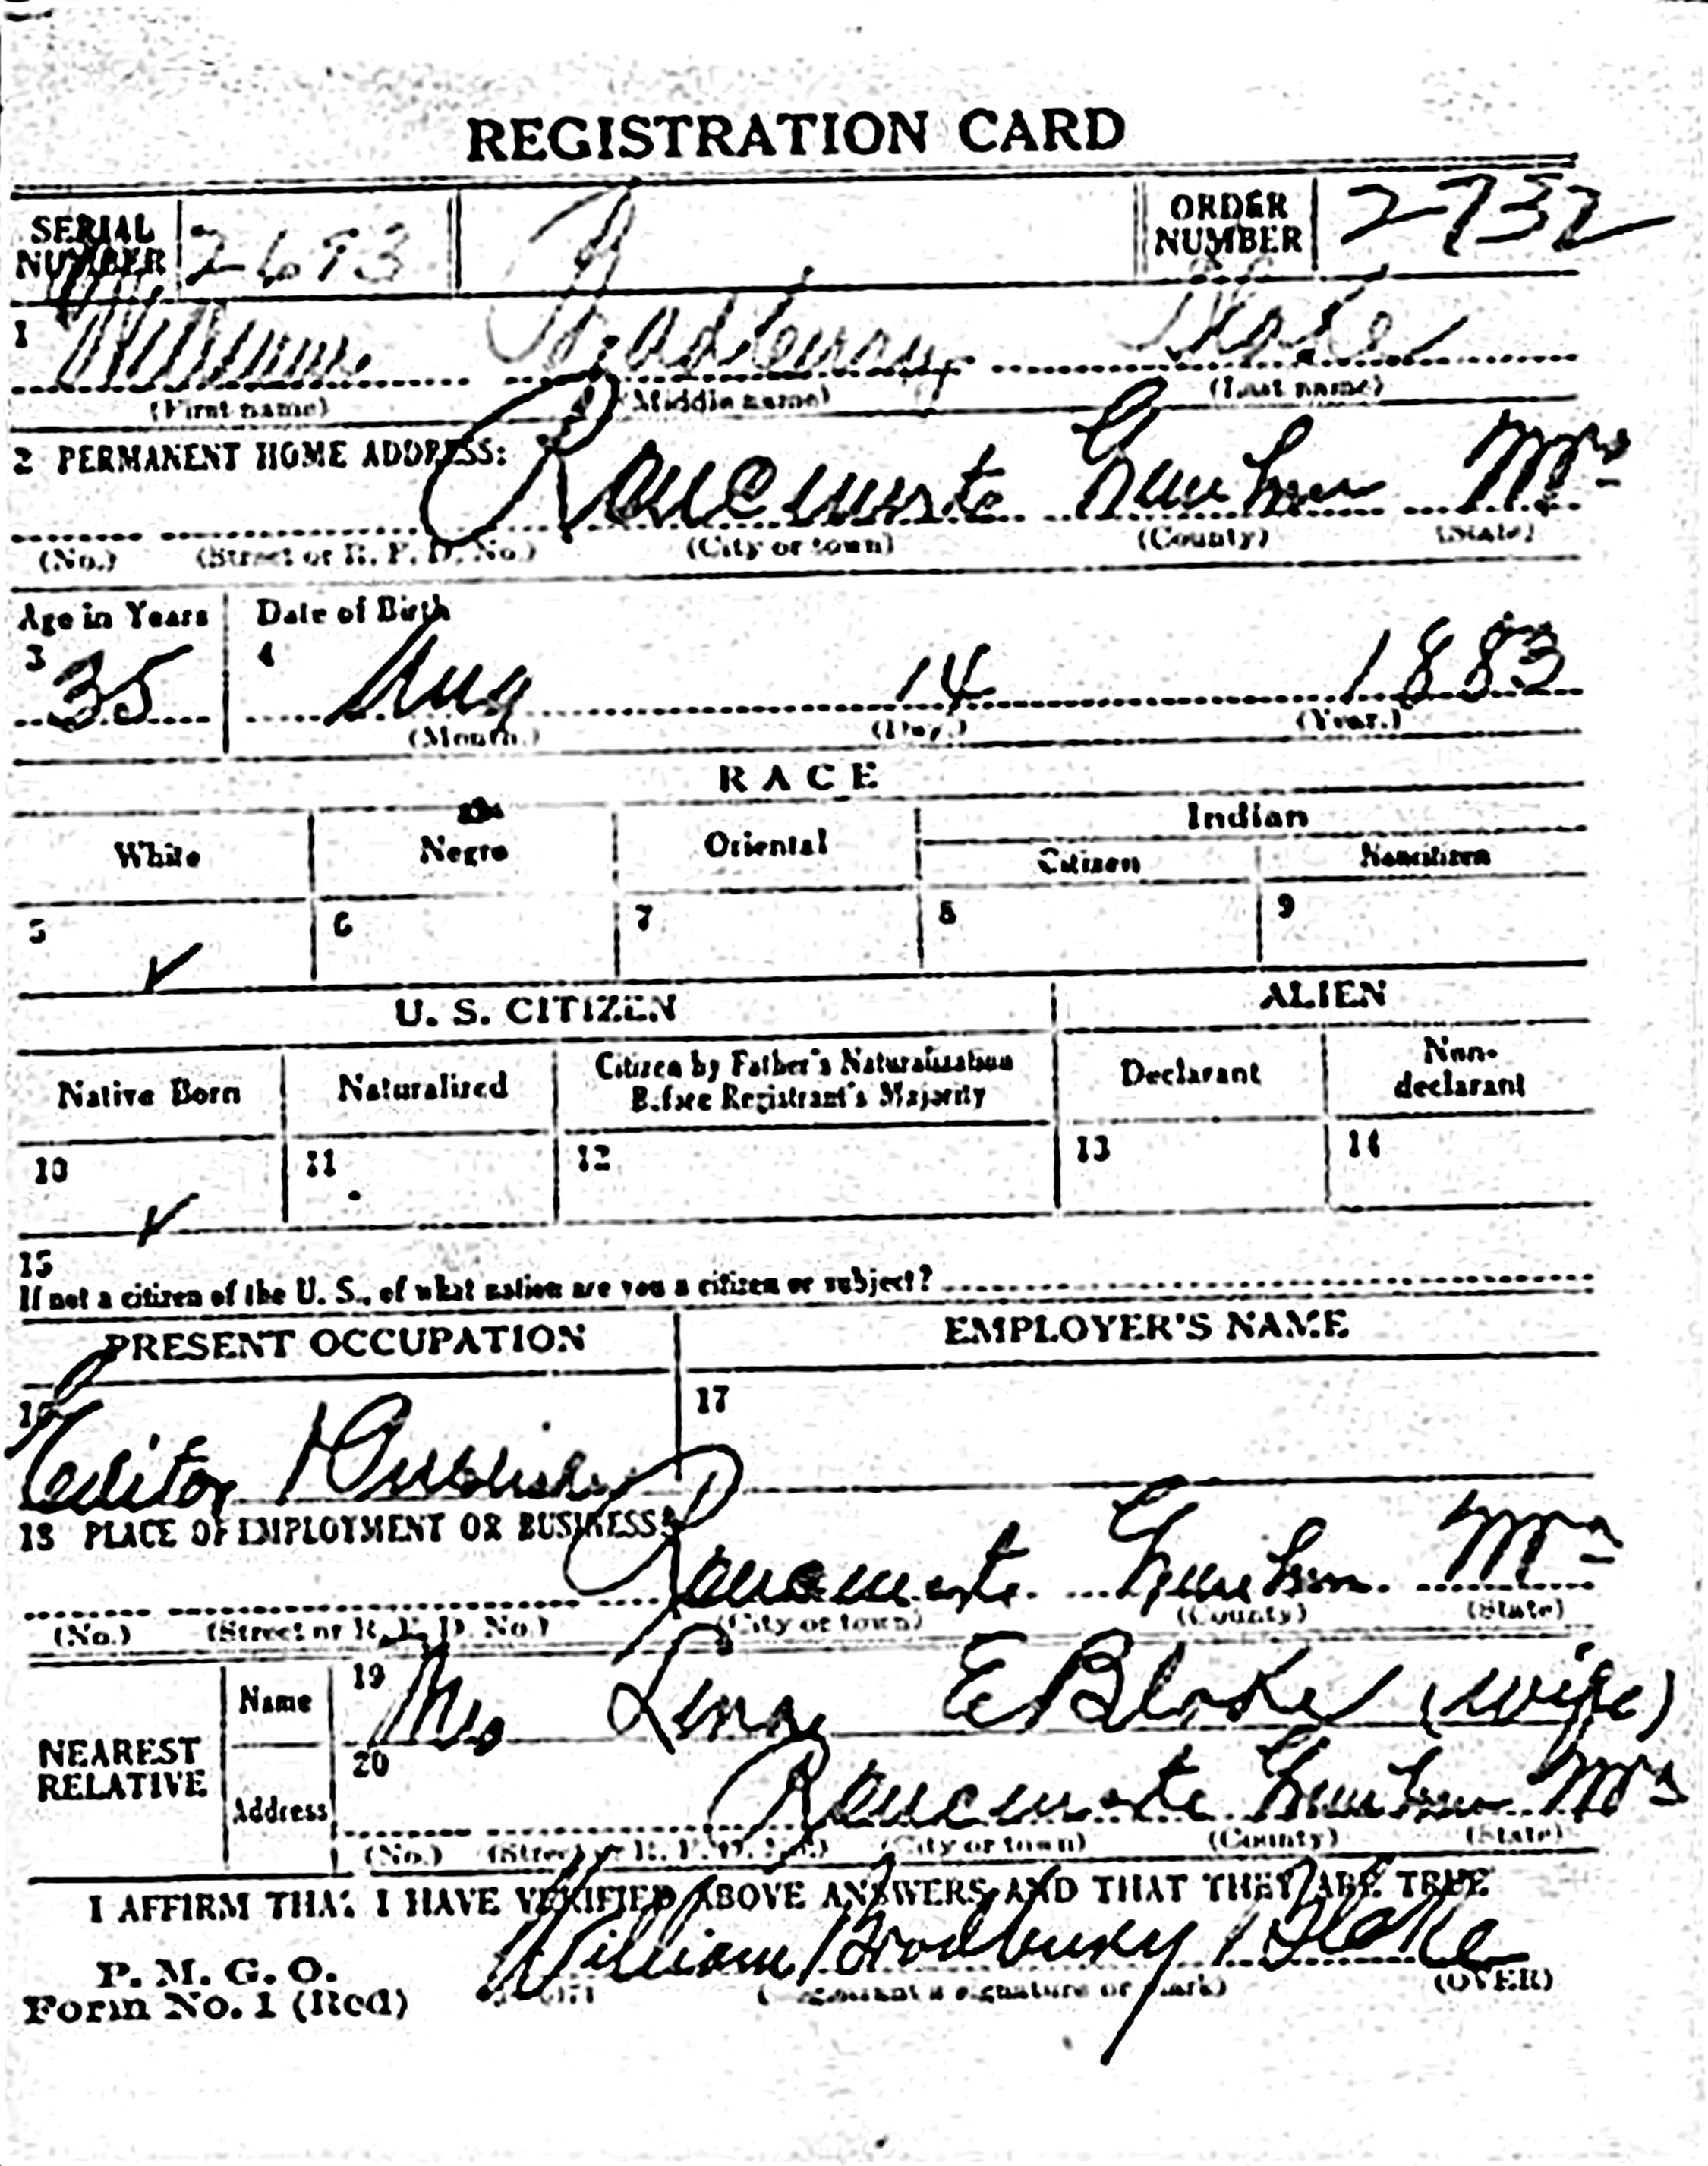 REGISTRATION CARD
SERIAL NUMBER 2693 ORDER NUMBER 2732
1 William Bradbury Blake
(First name) (Middle name) (Last name)
2 PERMANENT HOME ADDRESS:
(No.) (Street or R. F. D. No.) (City or town) (County) (State)
Age in Years Date of Birth
3 35 4 Aug 14 1883
(Month.) (Day.) (Year.)
RACE
White Negro Oriental Indian
Citizen Noncitizen
5 ✓ 6 7 8 9
U. S. CITIZEN ALIEN
Native Born Naturalized Citizen by Father's Naturalization Before Registrant's Majority Declarant Non-declarant
10 ✓ 11 12 13 14
15
If not a citizen of the U. S., of what nation are you a citizen or subject?
PRESENT OCCUPATION EMPLOYER'S NAME
16 Editor 17
18 PLACE OF EMPLOYMENT OR BUSINESS:
(No.) (Street or R. F. D. No.) (City or town) (County) (State)
NEAREST RELATIVE Name 19 Mrs Lena E Blake (wife)
Address 20
(No.) (Street or R. F. D. No.) (City or town) (County) (State)
I AFFIRM THAT I HAVE VERIFIED ABOVE ANSWERS AND THAT THEY ARE TRUE
P. M. G. O.
Form No. 1 (Red) William Bradbury Blake
(Registrant's signature or mark) (OVER)